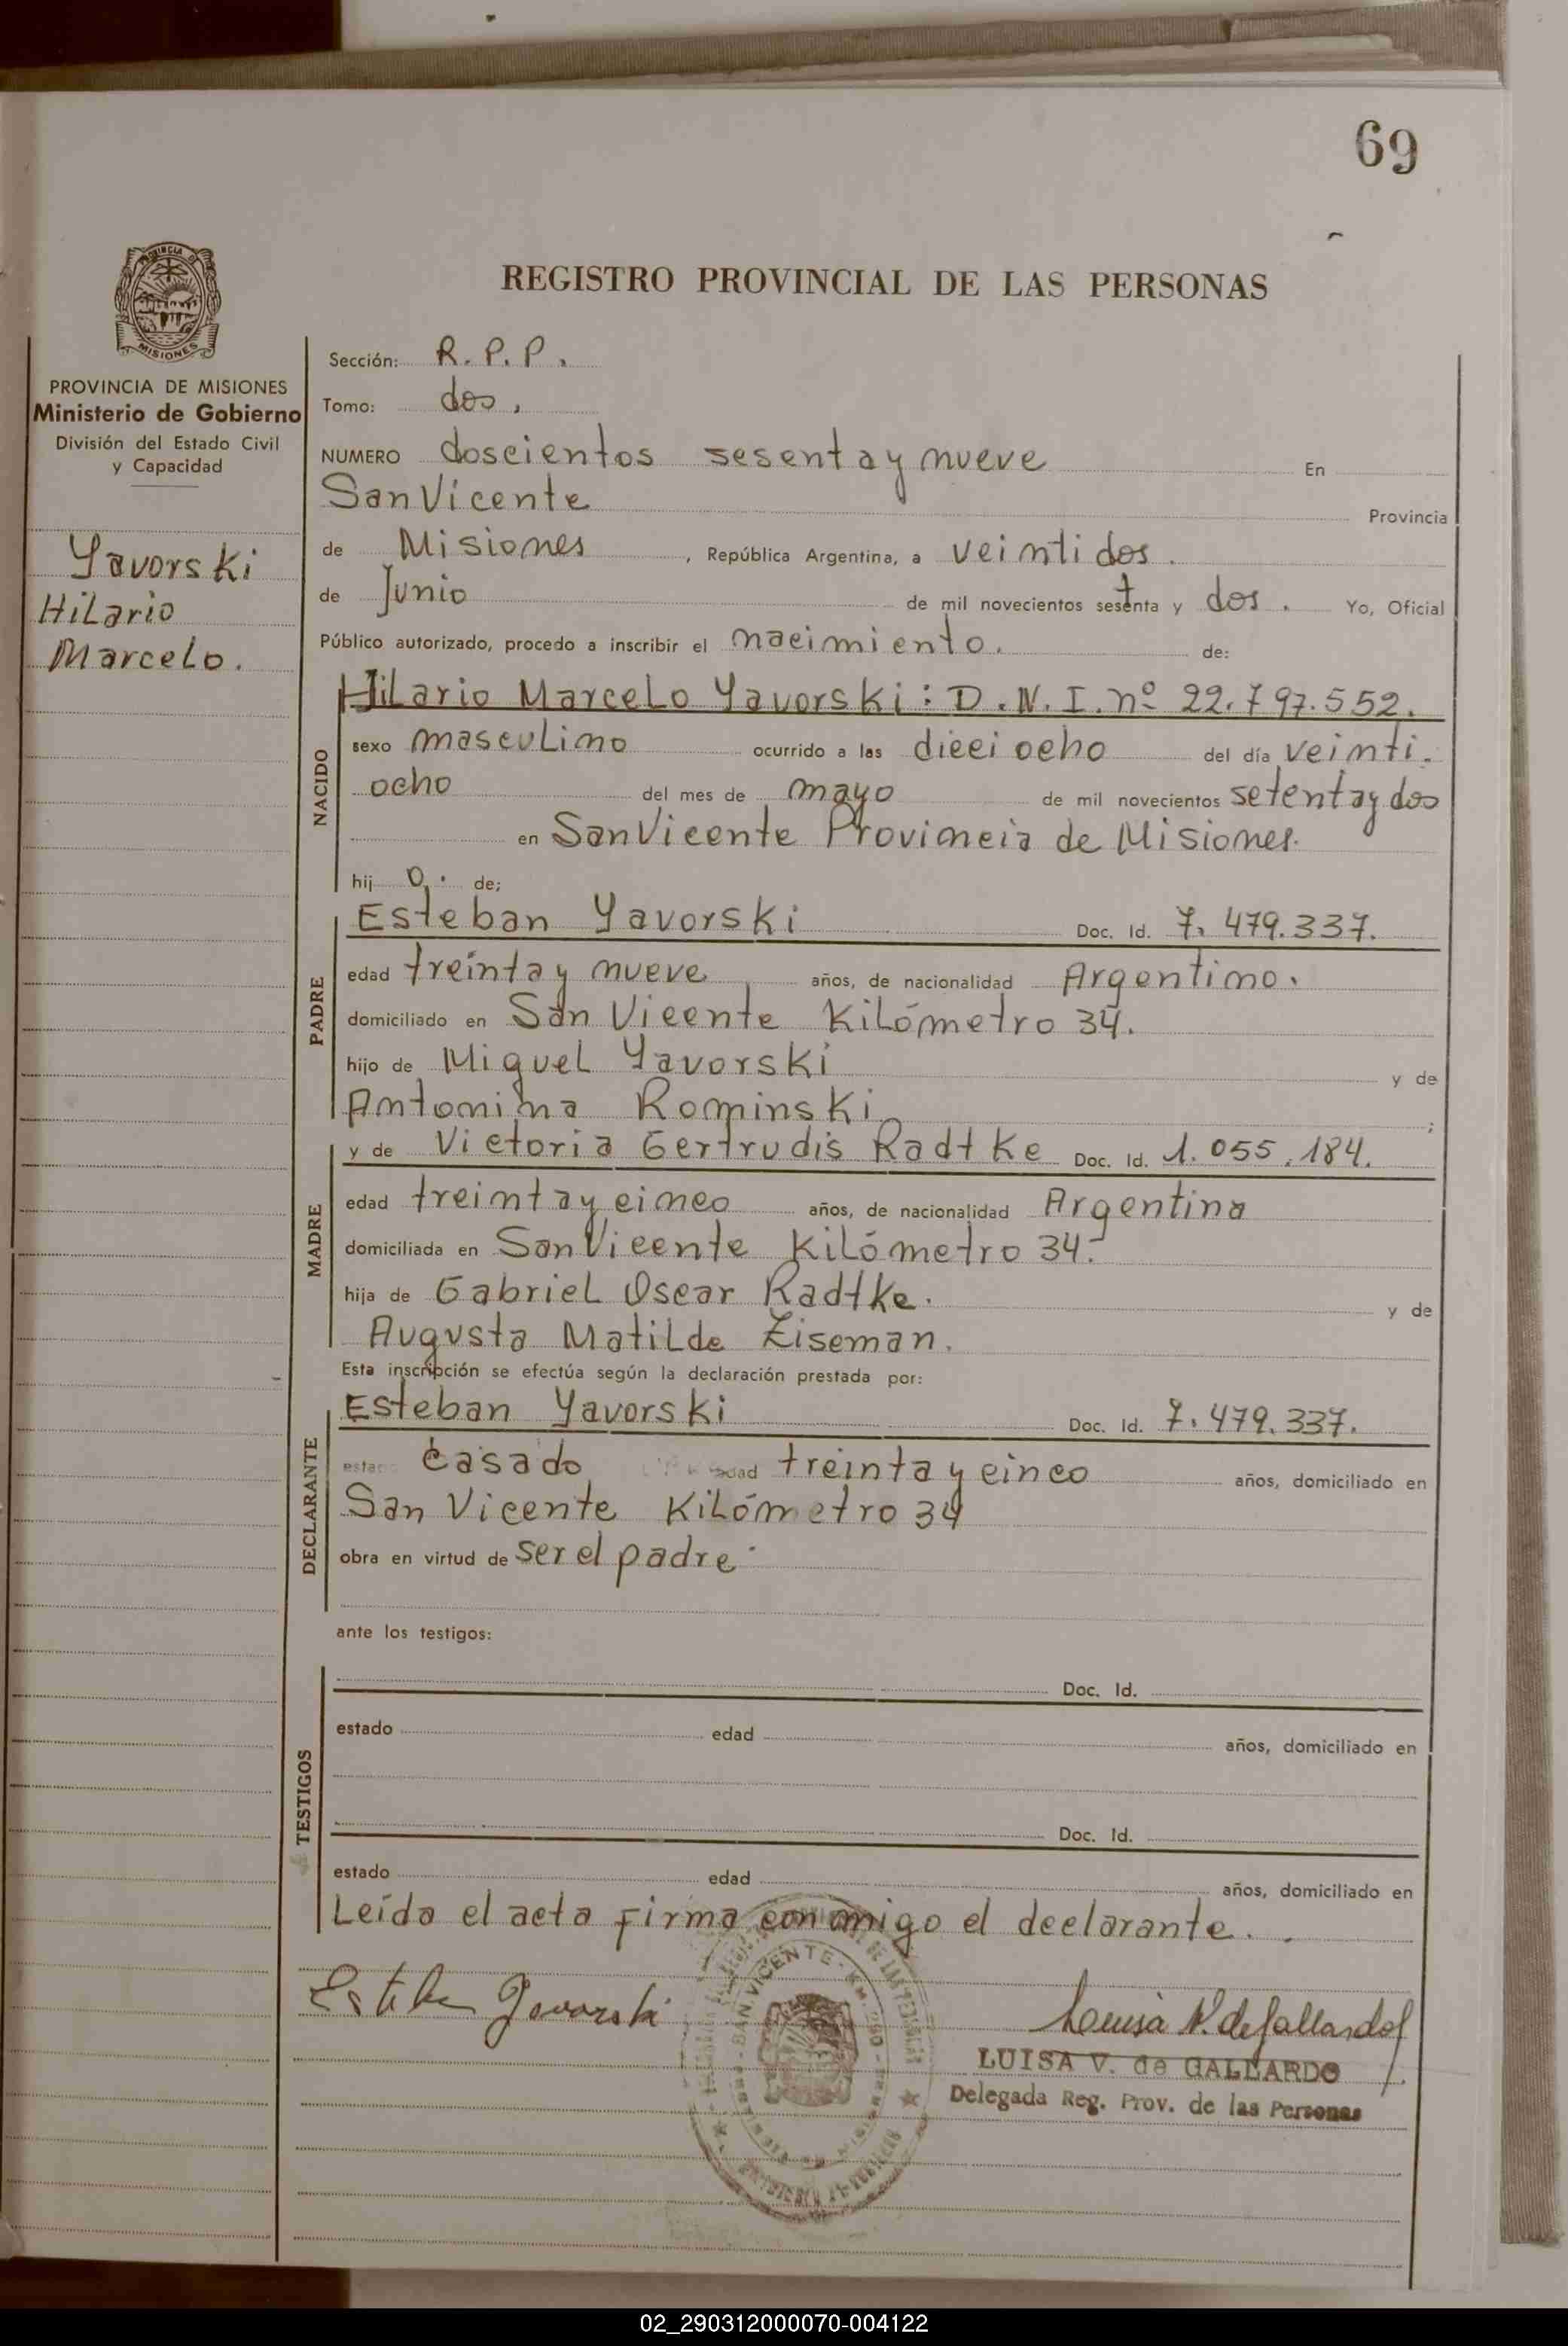 69
REGISTRO PROVINCIAL DE LAS PERSONAS
PROVINCIA DE MISIONES
Ministerio de Gobierno
División del Estado Civil
y Capacidad
Yavorski
Hilario
Marcelo.
Sección: R. P. P.
Tomo: dos.
NUMERO doscientos sesenta y nueve En
San Vicente Provincia
de Misiones, República Argentina, a veintidos.
de Junio de mil novecientos setenta y dos. Yo, Oficial
Público autorizado, procedo a inscribir el nacimiento. de:
Hilario Marcelo Yavorski: D.N.I. nº 22.797.552.
NACIDO
sexo masculino ocurrido a las dieciocho del día veinti.
ocho del mes de mayo de mil novecientos setenta y dos
en San Vicente Provincia de Misiones.
hij o. de;
PADRE
Esteban Yavorski Doc. Id. 7.479.337.
edad treinta y nueve años, de nacionalidad Argentino.
domiciliado en San Vicente Kilómetro 34.
hijo de Miguel Yavorski y de
Antonina Rominski ;
MADRE
y de Victoria Gertrudis Radtke Doc. Id. 1.055.184.
edad treinta y cinco años, de nacionalidad Argentina
domiciliada en San Vicente Kilómetro 34.-
hija de Gabriel Oscar Radtke. y de
Augusta Matilde Ziseman.
Esta inscripción se efectúa según la declaración prestada por:
DECLARANTE
Esteban Yavorski Doc. Id. 7.479.337.
estado Casado edad treinta y cinco años, domiciliado en
San Vicente Kilómetro 34
obra en virtud de ser el padre
ante los testigos:
TESTIGOS
Doc. Id.
estado edad años, domiciliado en
Doc. Id.
estado edad años, domiciliado en
Leída el acta firma conmigo el declarante.
Esteban Yavorski
Luisa V. de Gallardo
LUISA V. de GALLARDO
Delegada Reg. Prov. de las Personas
SAN VICENTE - Km.
02_290312000070-004122